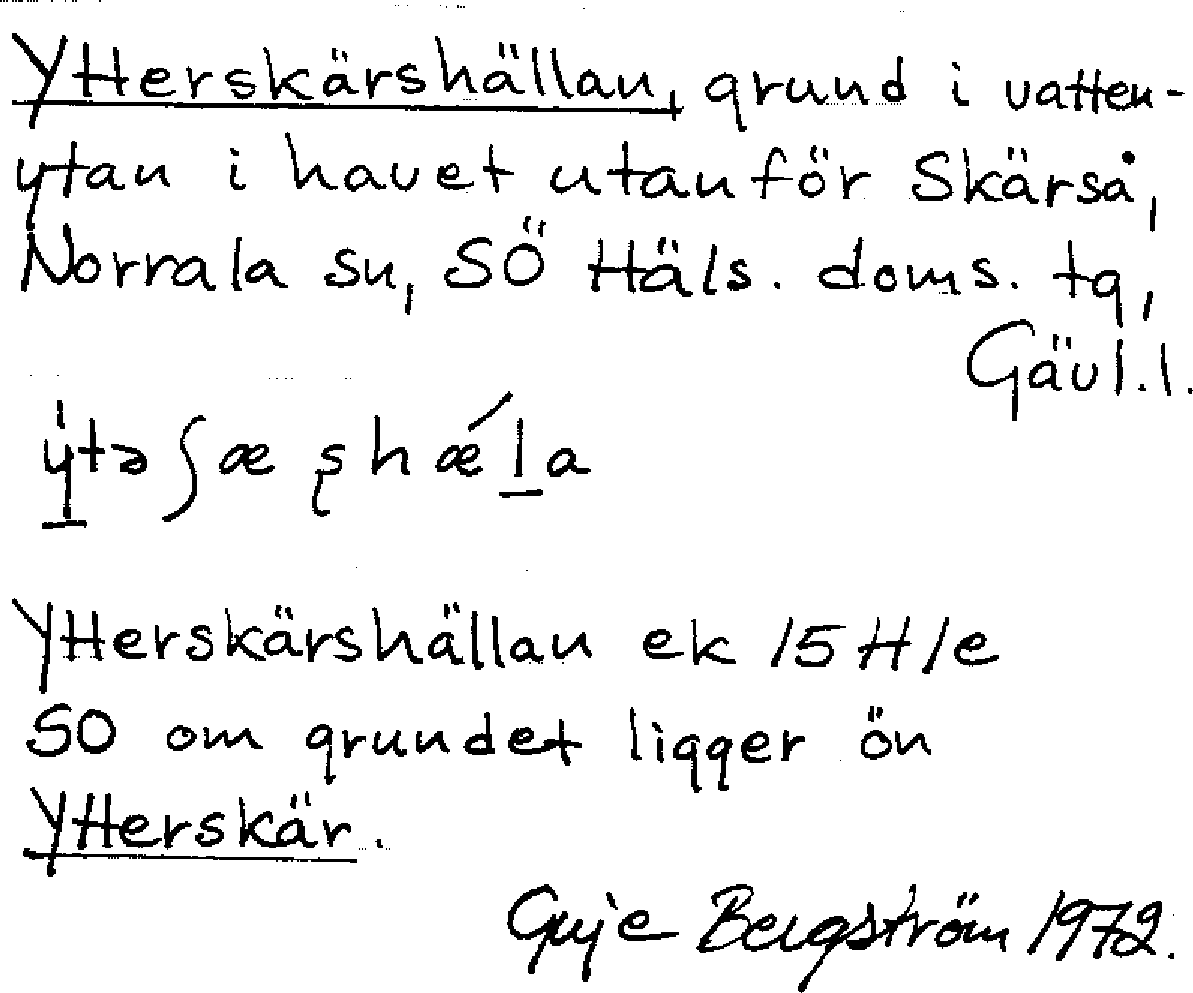 Ytterskärshällan, grund i vatten-
ytan i havet utanför Skärså,
Norrala sn, SÖ Häls. doms. tg,
Gävl.l.
ẏtəʃæʂhǽḻa
Ytterskärshällan ek 15H1e
SO om grundet ligger ön
Ytterskär.
Bergström 1972.